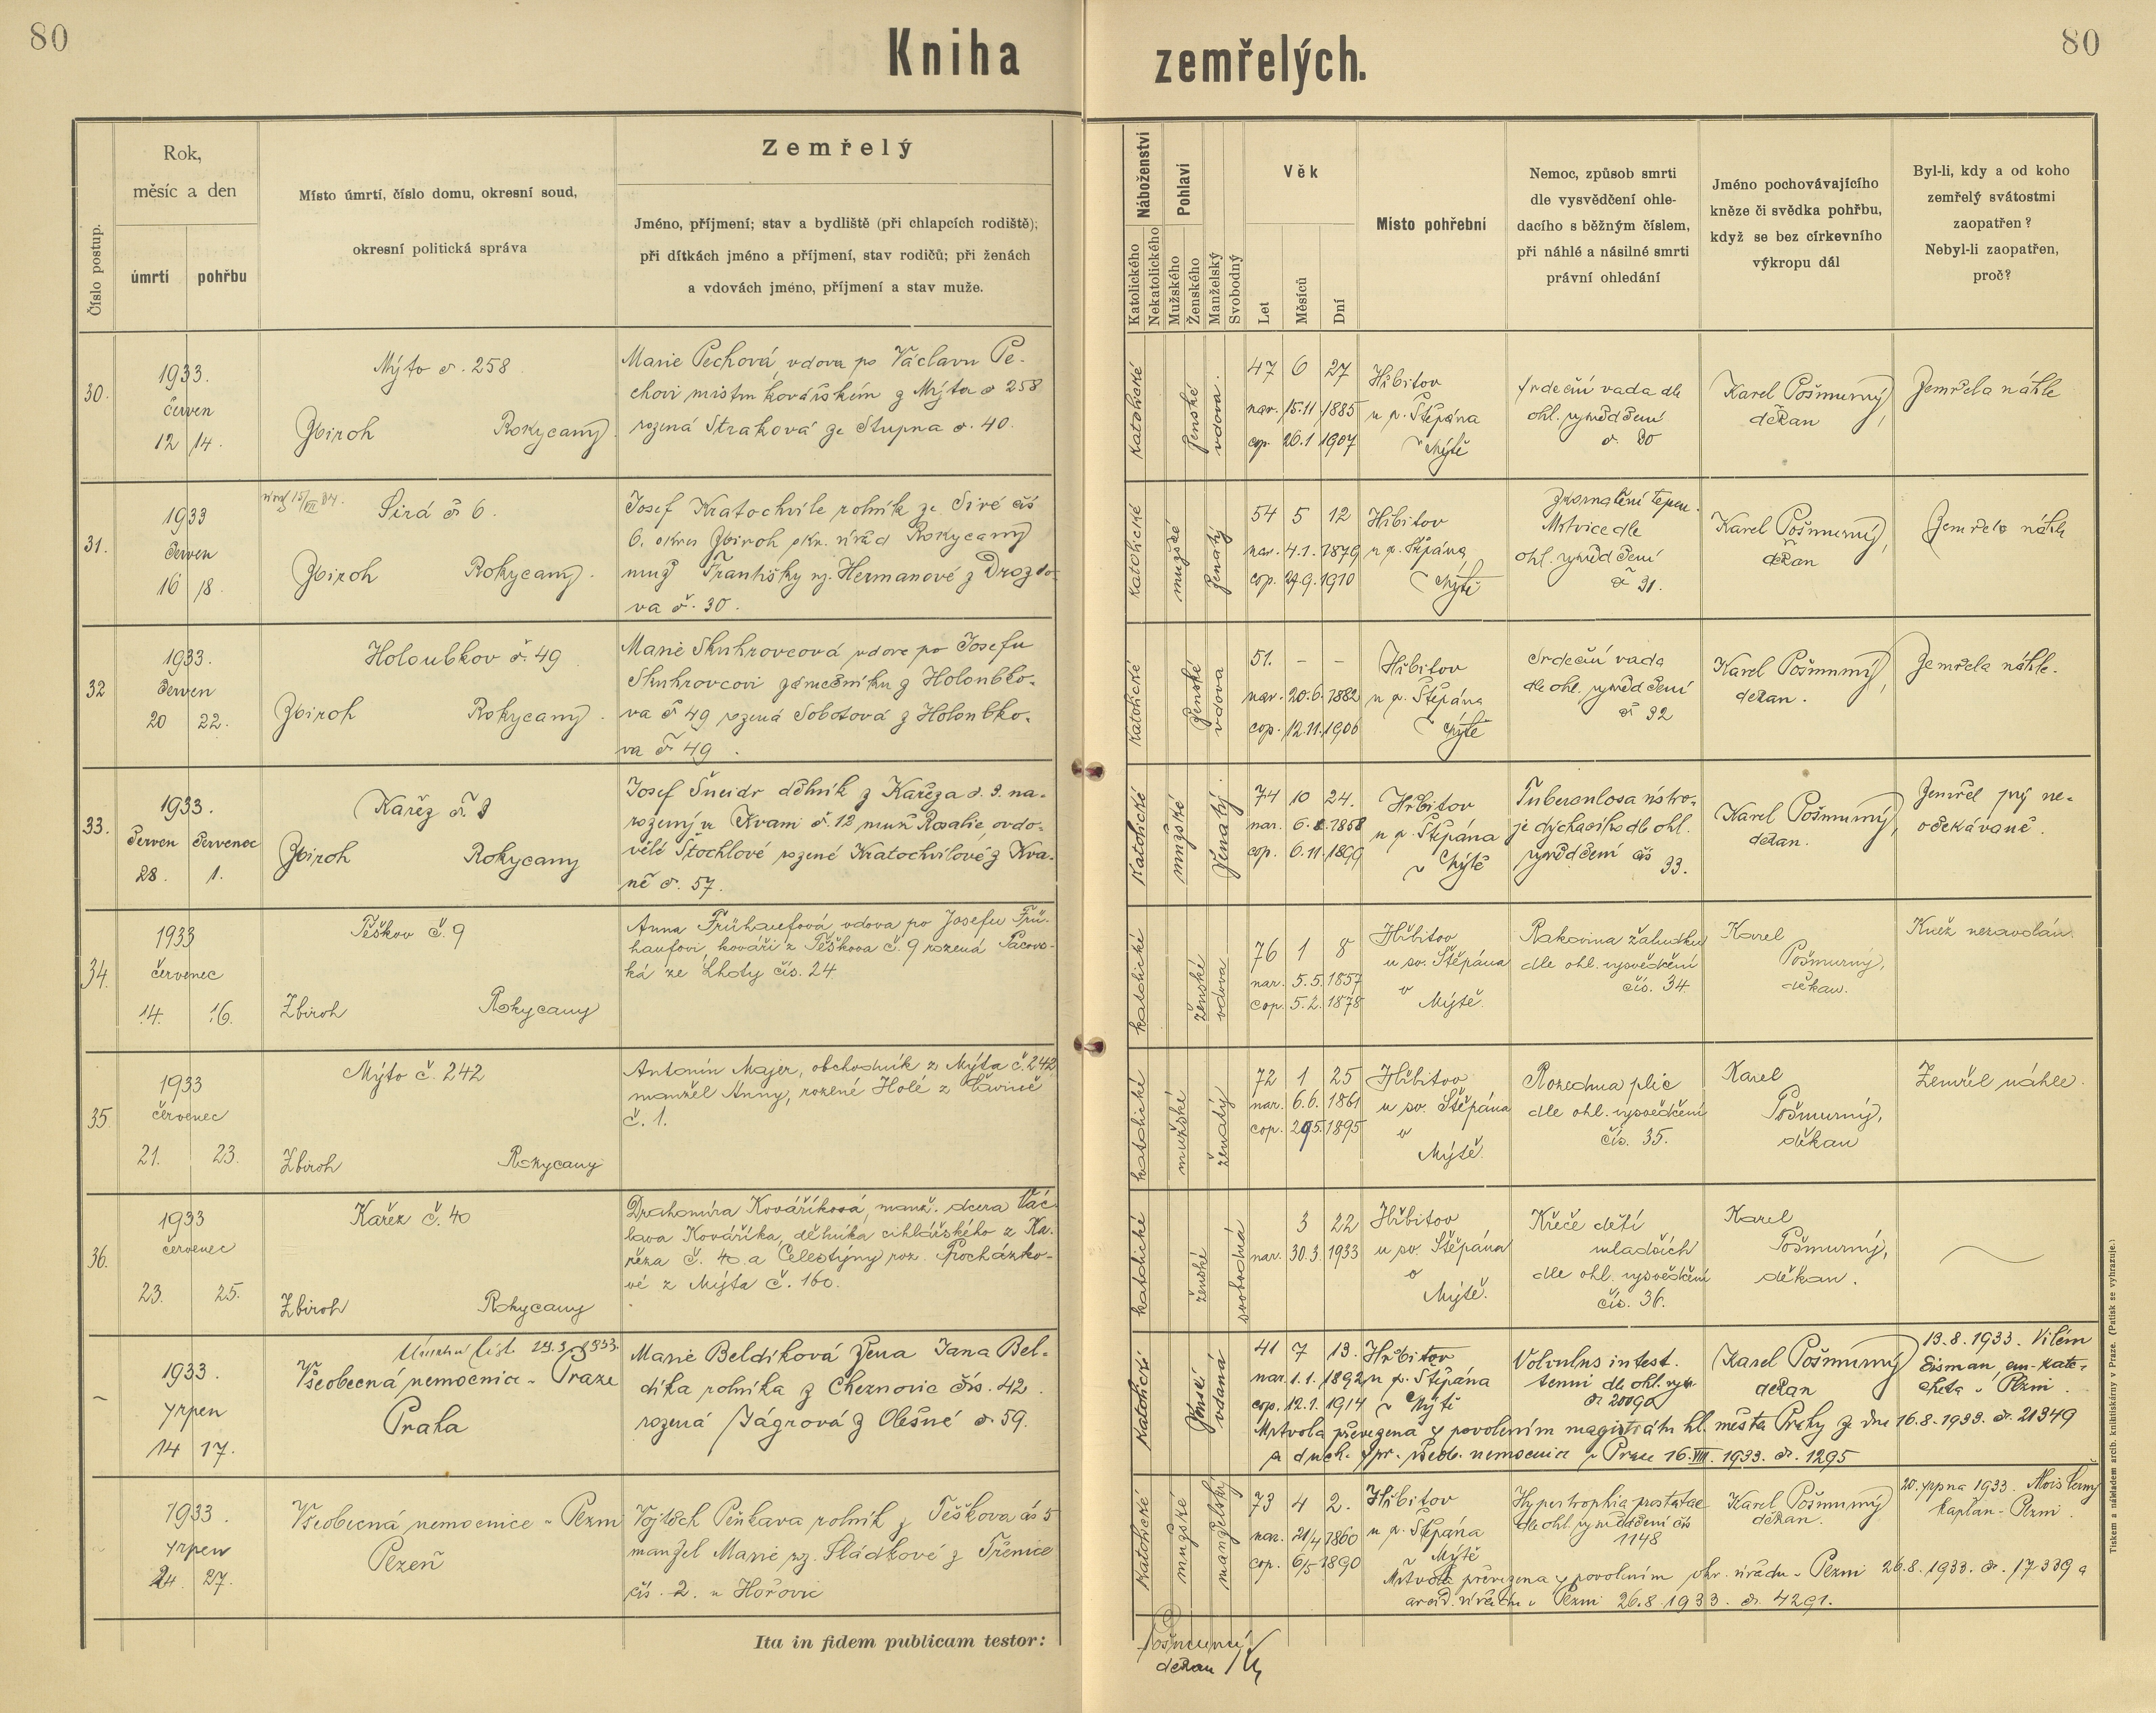 80
Kniha zemřelých.
80
Číslo postup.
Rok,
měsíc a den
úmrtí
pohřbu
Místo úmrtí, číslo domu, okresní soud,
okresní politická správa
Zemřelý
Jméno, příjmení; stav a bydliště (při chlapcích rodiště);
při dítkách jméno a příjmení, stav rodičů; při ženách
a vdovách jméno, příjmení a stav muže.
Náboženství
Katolického
Nekatolického
Pohlaví
Mužského
Ženského
Manželský
Svobodný
Věk
Let
Měsíců
Dní
Místo pohřební
Nemoc, způsob smrti
dle vysvědčení ohle-
dacího s běžným číslem,
při náhlé a násilné smrti
právní ohledání
Jméno pochovávajícího
kněze či svědka pohřbu,
když se bez církevního
výkropu dál
Byl-li, kdy a od koho
zemřelý svátostmi
zaopatřen?
Nebyl-li zaopatřen,
proč?
30.
1933.
červen
12 14.
Mýto č. 258
Zbiroh Rokycany
Marie Pechová, vdova po Václavu Pe-
chovi mistru kovářském z Mýta č 258
rozená Straková ze Stupna č. 40.
katolické
ženské
vdova.
47 6 27
nar. 15.11 1885
cop. 26.1 1907
Hřbitov
u sv. Štěpána
v Mýtě
srdeční vada dle
ohl. vysvědčení
č. 30
Karel Pošmurný,
děkan
Zemřela náhle
31.
1933
červen
16 18.
Sirá č 6.
Zbiroh Rokycany.
Josef Kratochvíle rolník ze Siré čís
6. okres Zbiroh okr. úřad Rokycany
muž Františky roz. Heřmanové z Drozdo-
va č. 30.
katolické
mužské
ženatý
54 5 12
nar. 4.1. 1879
cop. 27.9. 1910
Hřbitov
u sv. Štěpána
v Mýtě
Zkornatění tepen.
Mrtvice dle
ohl. vysvědčení
č 31.
Karel Pošmurný,
děkan
Zemřelo náhle
32
1933.
červen
20 22.
Holoubkov č. 49
Zbiroh Rokycany.
Marie Skuhrovcová vdova po Josefu
Skuhrovcovi zámečníku z Holoubko-
va č 49 rozená Sobotová z Holoubko-
va č 49.
katolické
ženské
vdova
51. – –
nar. 20.6. 1882
cop. 12.11. 1906
Hřbitov
u sv. Štěpána
v Mýtě
Srdeční vada
dle ohl. vysvědčení
č 32
Karel Pošmurný,
děkan.
Zemřela náhle.
33.
1933.
červen červenec
28. 1.
Kařez č. 3
Zbiroh Rokycany
Josef Šneidr dělník z Kařeza č. 3. na-
rozený ve Kvani č. 12 muž Rosalie, ovdo-
vělé Štochlové rozené Kratochvílové z Kva-
ně č. 57.
katolické
mužské
ženatý.
74 10 24.
nar. 6. 8. 1858
cop. 6.11. 1899
Hřbitov
u sv. Štěpána
v Mýtě
Tuberculosa ústro-
je dýchacího dle ohl.
vysvědčení čís
33.
Karel Pošmurný,
děkan.
Zemřel prý ne-
očekávaně.
34.
1933
červenec
14. 16.
Těškov č. 9
Zbiroh Rokycany
Anna Frühaufová, vdova po Josefu Frü-
haufovi, kováři z Těškova č. 9 rozená Pacovs-
ká ze Lhoty čís. 24
katolické
ženské
vdova
76 1 8
nar. 5.5. 1857
cop. 5.2. 1878
Hřbitov
u sv. Štěpána
v
Mýtě.
Rakovina žaludku
dle ohl. vysvědčení
čís. 34
Karel
Pošmurný,
děkan.
Kněz nezavolán.
35.
1933
červenec
21. 23.
Mýto č. 242
Zbiroh Rokycany
Antonín Majer, obchodník z Mýta č. 242
manžel Anny, rozené Holé z
č. 1.
katolické
mužské
ženatý
72 1 25
nar. 6.6. 1861
cop. 29.5. 1895
Hřbitov
u sv. Štěpána
v
Mýtě.
Rozedma plic
dle ohl. vysvědčení
čís. 35.
Karel
Pošmurný,
děkan
Zemřel náhle.
36.
1933
červenec
23. 25.
Kařez č. 40
Zbiroh Rokycany
Drahomíra Kováříková, manž. dcera Vác-
lava Kováříka, dělníka cihlářského z Ka-
řeza č. 40 a Celestýny roz. Procházko-
vé z Mýta č. 160.
katolické
ženské
svobodná
3 22
nar. 30.3. 1933
Hřbitov
u sv. Štěpána
v
Mýtě.
Křeče dětí
mladších
dle ohl. vysvědčení
čís. 36.
Karel
Pošmurný,
děkan.
–
1933.
srpen
14 17.
Všeobecná nemocnice v Praze
Praha
Marie Beldíková žena Jana Bel-
díka rolníka z Cheznovic čís. 42.
rozená Jágrová z Olešné č. 59.
katolické
ženské
vdaná
41 7 13.
nar. 1.1. 1892
cop. 12.1. 1914
Hřbitov
u sv. Štěpána
v Mýtě
Volvulus intest.
tenui dle ohl. vysv.
Karel Pošmurný
děkan
13.8.1933. Vilém
Eisman, em. kate-
cheta v Plzni.
Mrtvola převezena s povolením magistrátu hl. města Prahy ze dne 16.8.1933. č. 21349
a duch. spr. všeob. nemocnice v Praze 16.VIII.1933. č. 1295
1933.
srpen
24. 27.
Všeobecná nemocnice v Plzni
Plzeň
Vojtěch Peňkava rolník z Těškova čís 5
manžel Marie roz. Sládkové z Třenice
čís. 2. u Hořovic
katolické
mužské
manželský
73 4 2.
nar. 21/4 1860
cop. 6/5 1890
Hřbitov
u sv. Štěpána
Mýtě
Hypertrophia prostatae
dle ohl. vysvědčení čís
1148
Karel Pošmurný
děkan.
20. srpna 1933. Alois Černý
kaplan v Plzni.
Mrtvola převezena s povolením okr. úřadu v Plzni 26.8.1933. č. 17.339 a
v Plzni 26.8.1933. č. 4291.
Ita in fidem publicam testor:
Pošmurný
děkan
Tiskem a nákladem arcib. knihtiskárny v Praze. (Patisk se vyhrazuje.)